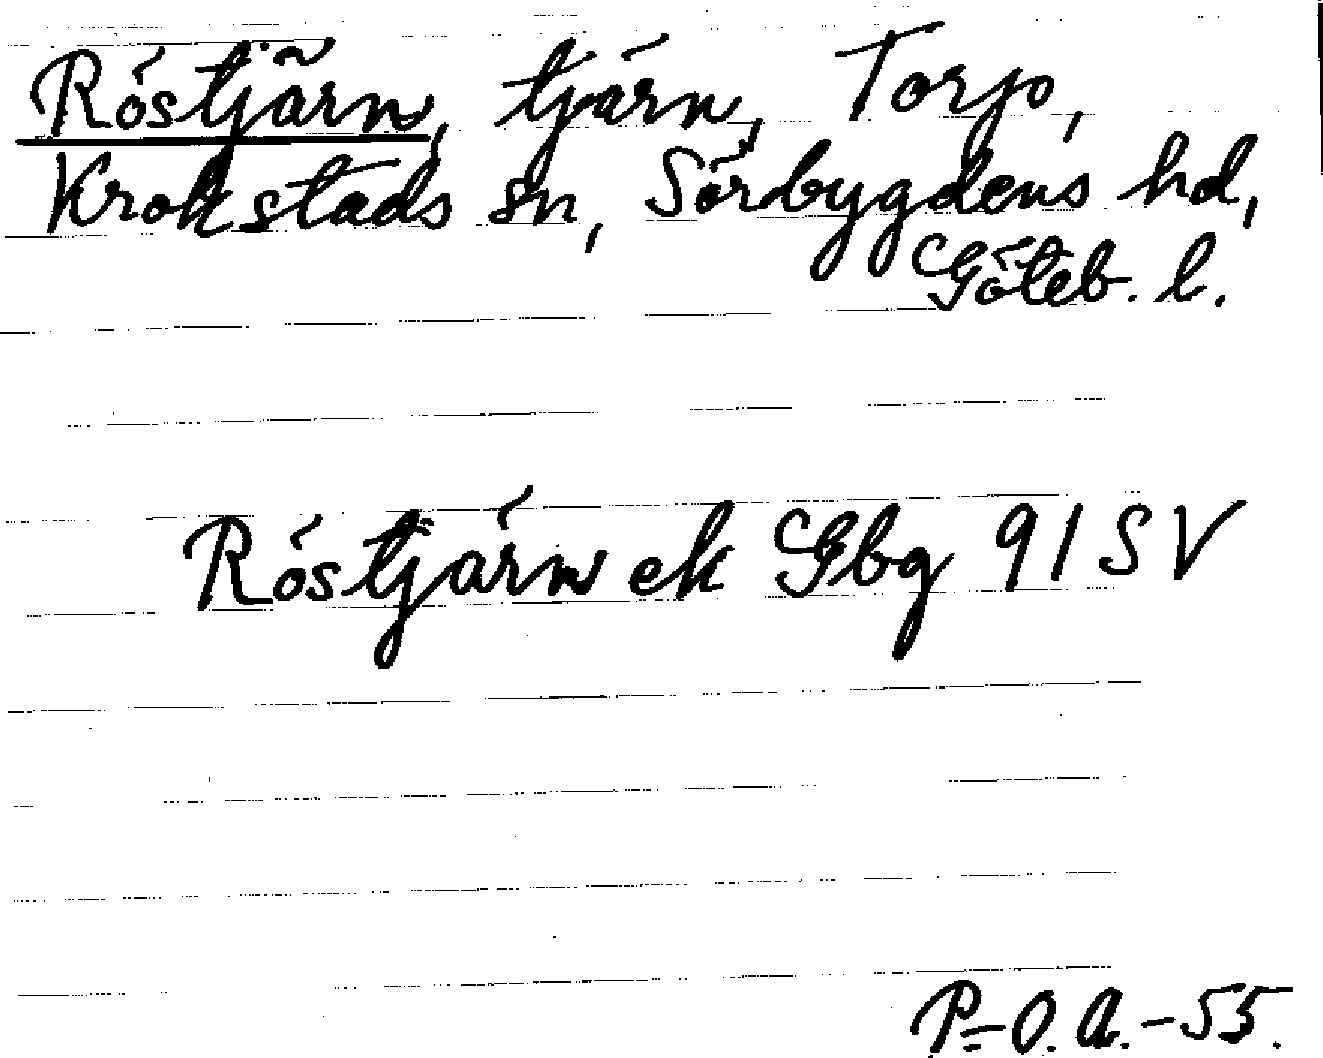 Röstjärn, tjärn, Torp,
Krokstads sn, Sörbygdens hd,
Göteb. l.
Röstjärn ek Gbg 91 SV
P-O. A. - 55.